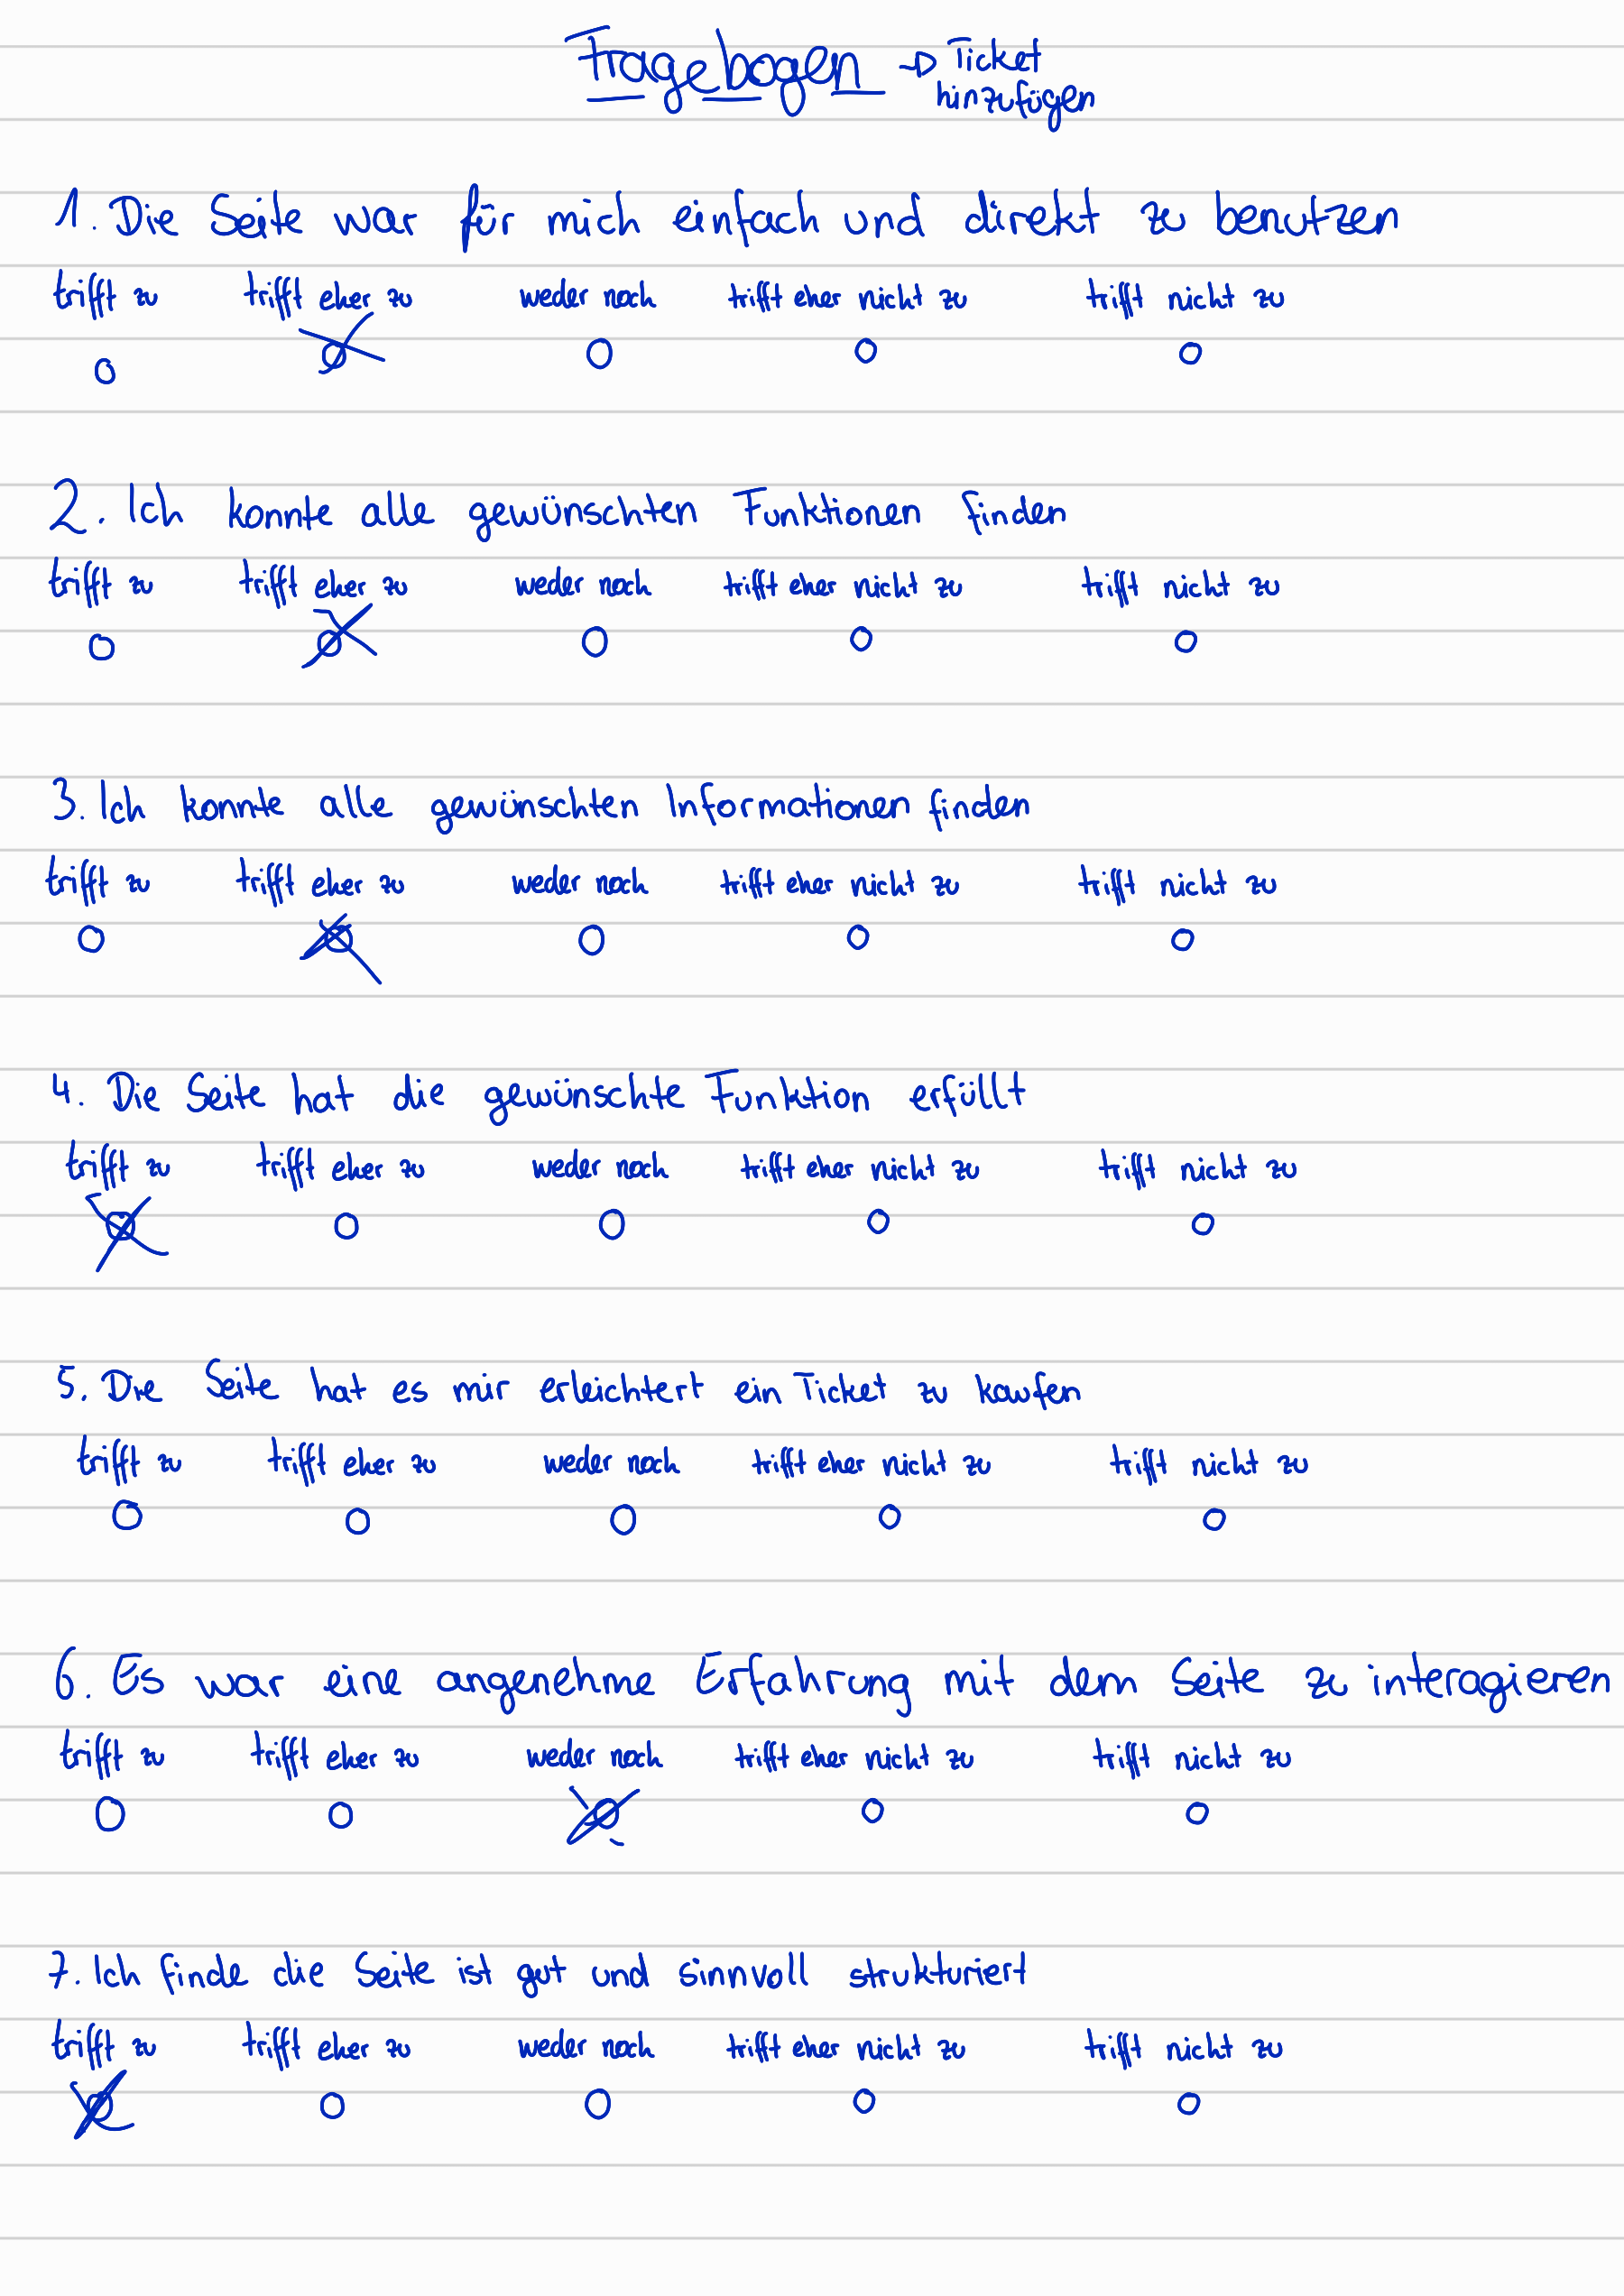 Fragebogen → Ticket
hinzufügen
1. Die Seite war für mich einfach und direkt zu benutzen
trifft zu trifft eher zu weder noch trifft eher nicht zu trifft nicht zu
2. Ich konnte alle gewünschten Funktionen finden
trifft zu trifft eher zu weder noch trifft eher nicht zu trifft nicht zu
3. Ich konnte alle gewünschten Informationen finden
trifft zu trifft eher zu weder noch trifft eher nicht zu trifft nicht zu
4. Die Seite hat die gewünschte Funktion erfüllt
trifft zu trifft eher zu weder noch trifft eher nicht zu trifft nicht zu
5. Die Seite hat es mir erleichtert ein Ticket zu kaufen
trifft zu trifft eher zu weder noch trifft eher nicht zu trifft nicht zu
6. Es war eine angenehme Erfahrung mit dem Seite zu interagieren
trifft zu trifft eher zu weder noch trifft eher nicht zu trifft nicht zu
7. Ich finde die Seite ist gut und sinnvoll strukturiert
trifft zu trifft eher zu weder noch trifft eher nicht zu trifft nicht zu